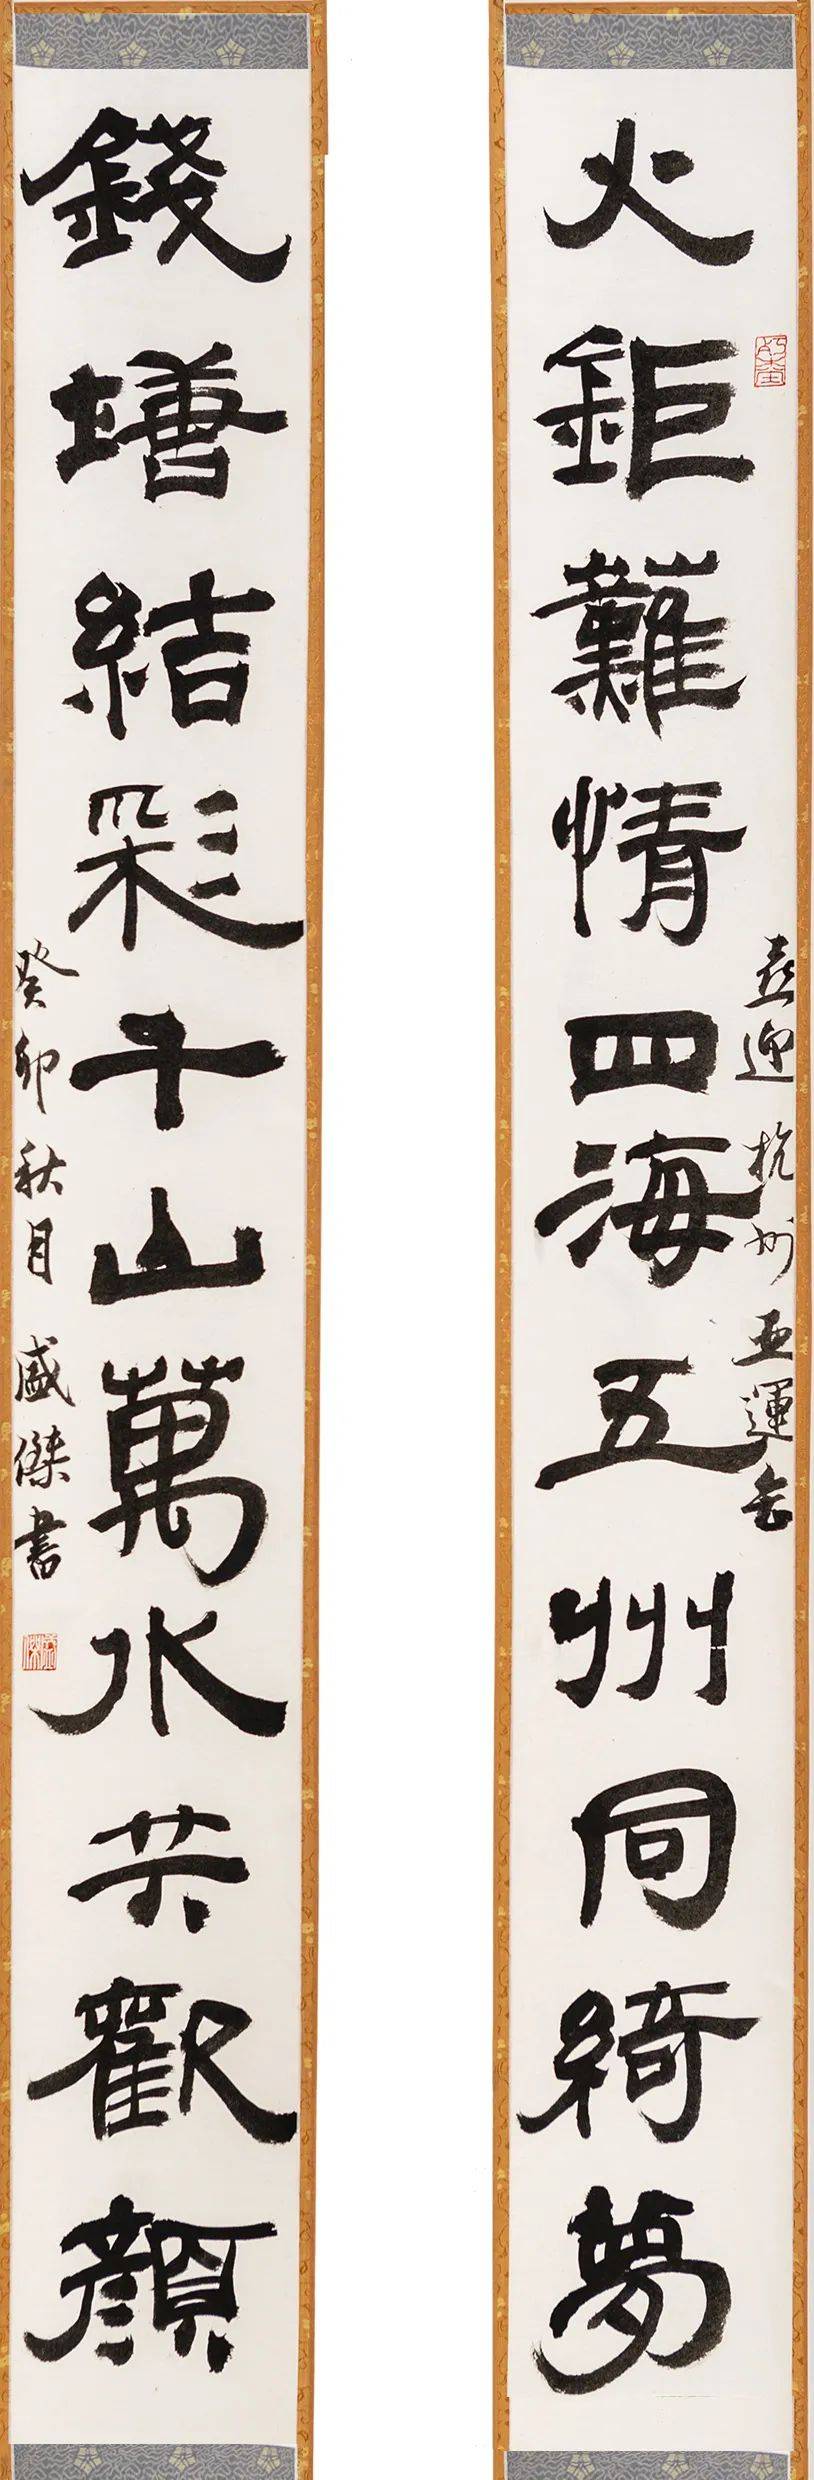 火鉅䕼情四海五州同綺夢
喜迎杭州亞運會
錢塘結彩千山萬水共歡顏
癸卯秋月盛傑書
盛傑